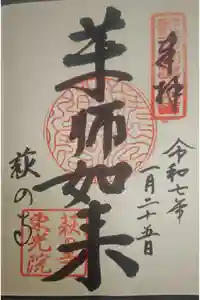 奉拝
令和七年
一月二十五日
薬師如来
萩の寺
萩の寺
東光院